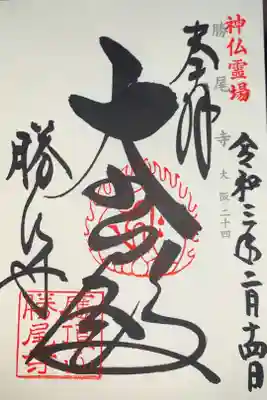 神仏霊場
勝尾寺 大阪二十四
奉拝
大悲殿
勝尾寺
令和三年二月十四日